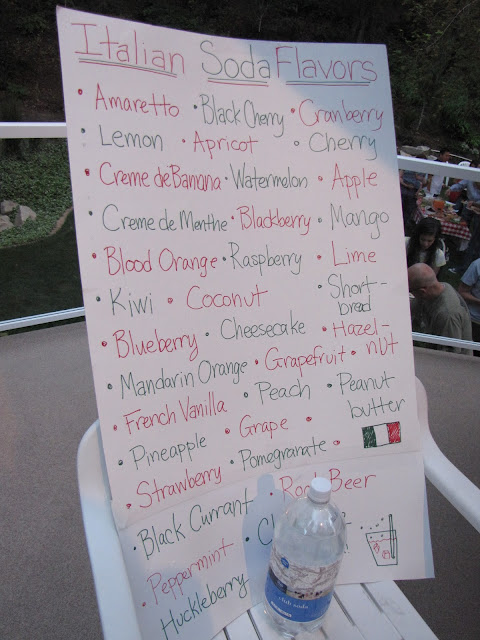 Italian Soda Flavors
• Amaretto • Black Cherry • Cranberry
• Lemon • Apricot • Cherry
• Creme de Banana • Watermelon • Apple
• Creme de Menthe • Blackberry • Mango
• Blood Orange • Raspberry • Lime
• Kiwi • Coconut • Short-
bread
• Blueberry • Cheesecake • Hazel-
nut
• Mandarin Orange • Grapefruit
• French Vanilla • Peach • Peanut
butter
• Pineapple • Grape
• Strawberry • Pomegranate
• Black Currant Root Beer
• Peppermint
• Huckleberry
club soda